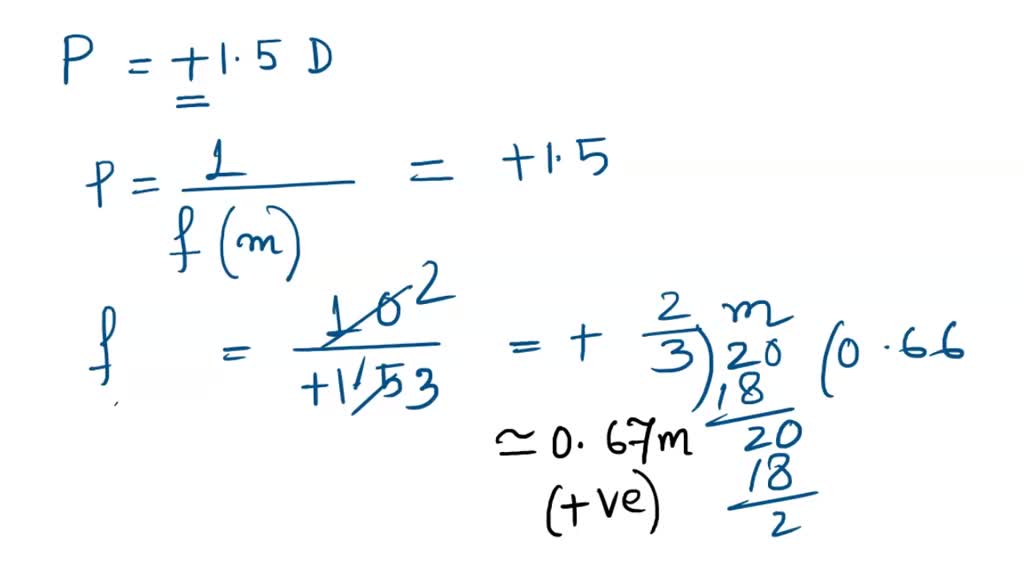 P = +1.5 D
P = 1 / f (m) = +1.5
f = 10 2 / +1.5 3 = + 2/3 m
3) 20 (0.66
18
20
18
2
≃ 0.67m
(+ve)